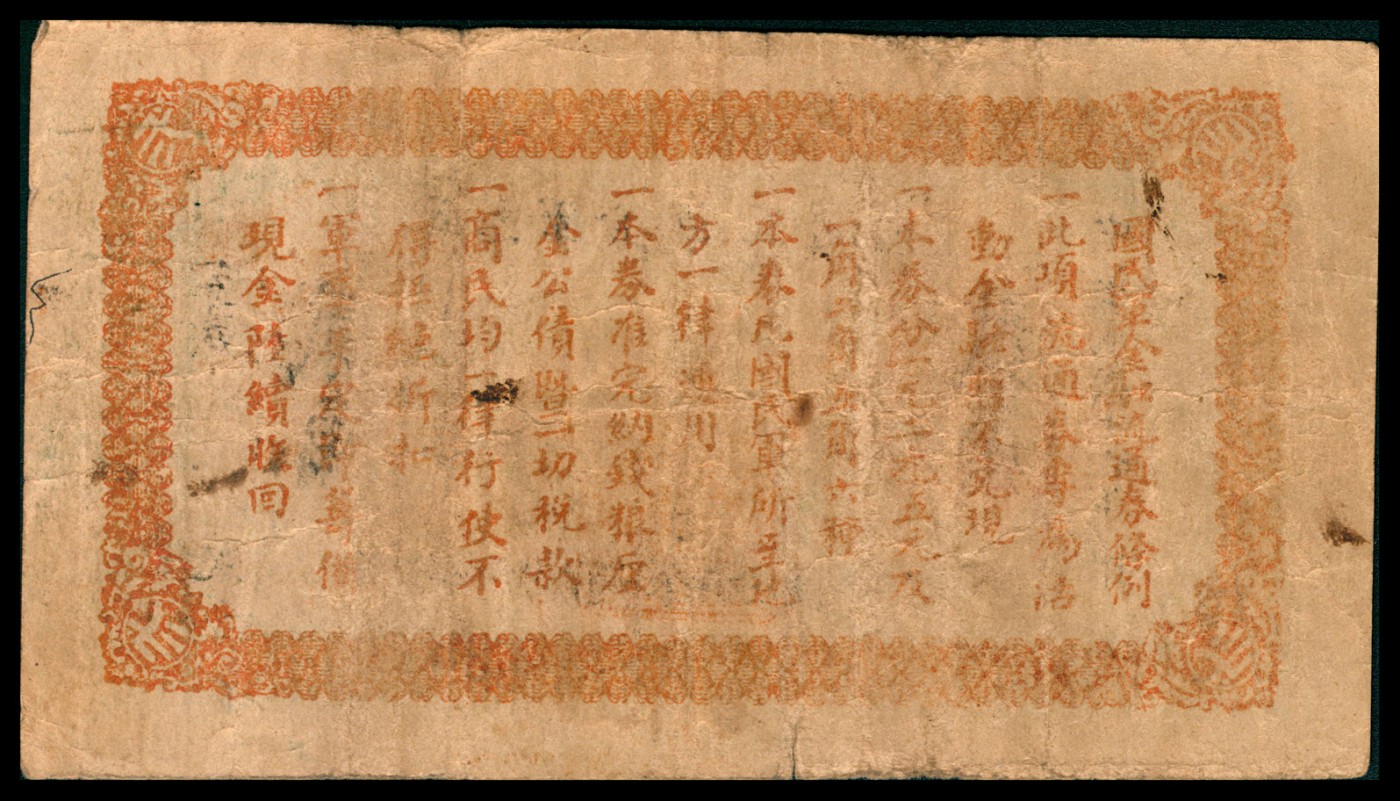 國民軍金融流通券條例
一此項流通券專為活
動金融暫不兌現
一本券分一元二元五元及
一角二角五角六種
一本券凡國民軍所至地
方一律通用
一本券准完納錢粮厘
金公債暨一切税款
一商民均一律行使不
得拒絕折扣
一軍事
現金陸續收回